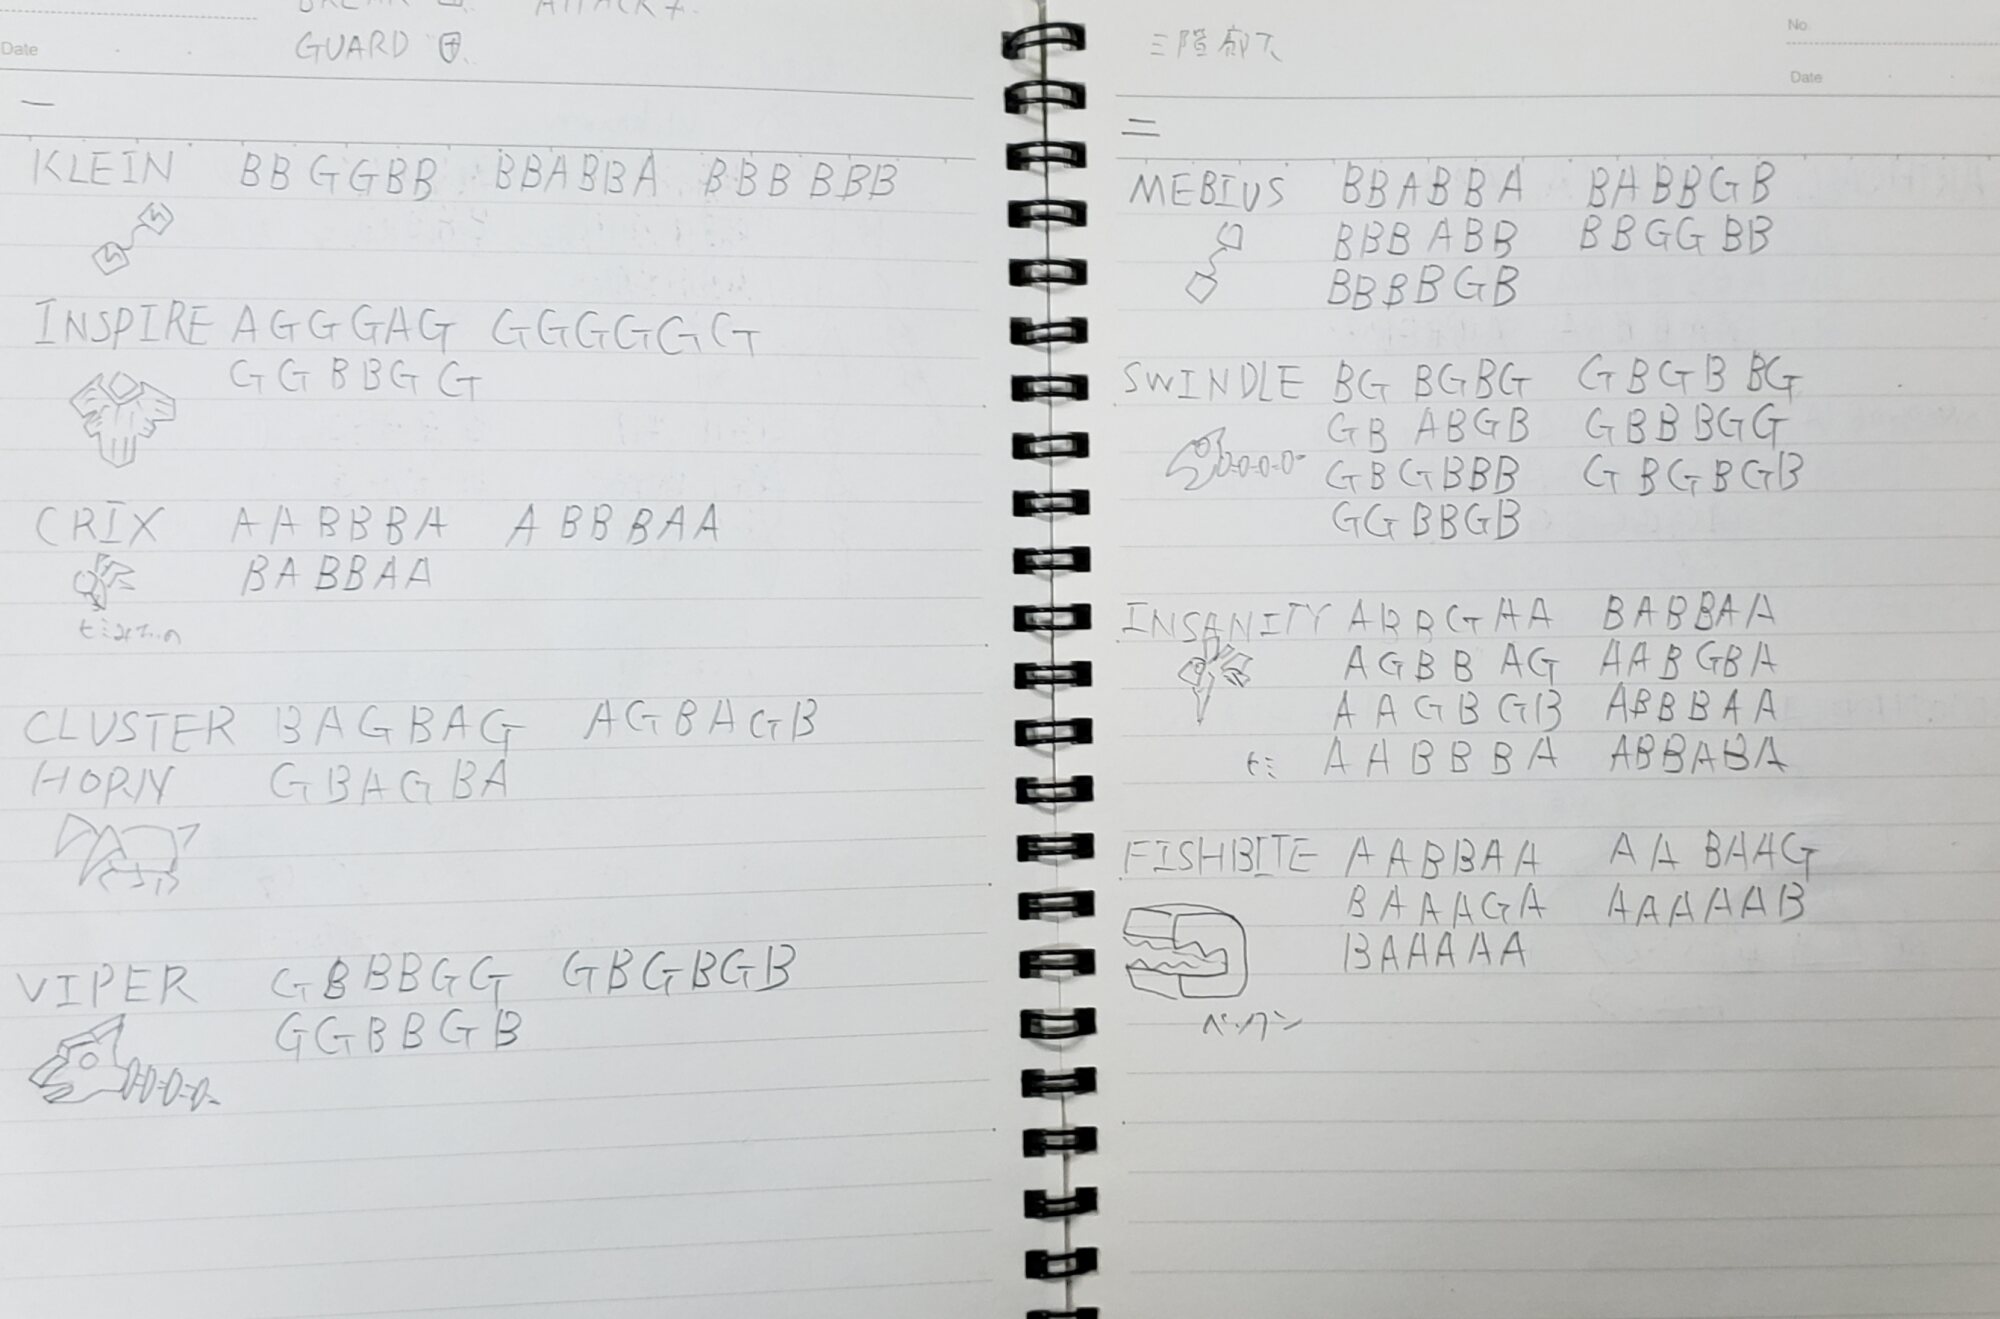 BREAK ATTACK
Date
GUARD
一
KLEIN BBGGBB BBABBA BBBBBB
INSPIRE AGGGAG GGGGGG
GGBBGG
CRIX AABBBA ABBBAA
BABBAA
CLUSTER BAGBAG AGBAGB
HORN GBAGBA
VIPER GBBBGG GBGBGB
GGBBGB
No.
Date
二
MEBIUS BBABBA BABBGB
BBBABB BBGGBB
BBBBGB
SWINDLE BGBGBG GBGBBG
GBABGB GBBBGG
GBGBBB GBGBGB
GGBBGB
INSANITY ABBGAA BABBAA
AGBBAG AABGBA
AAGBGB ABBBAA
AABBBA ABBABA
FISHBITE AABBAA AABAAG
BAAAGA AAAAAB
BAAAAA